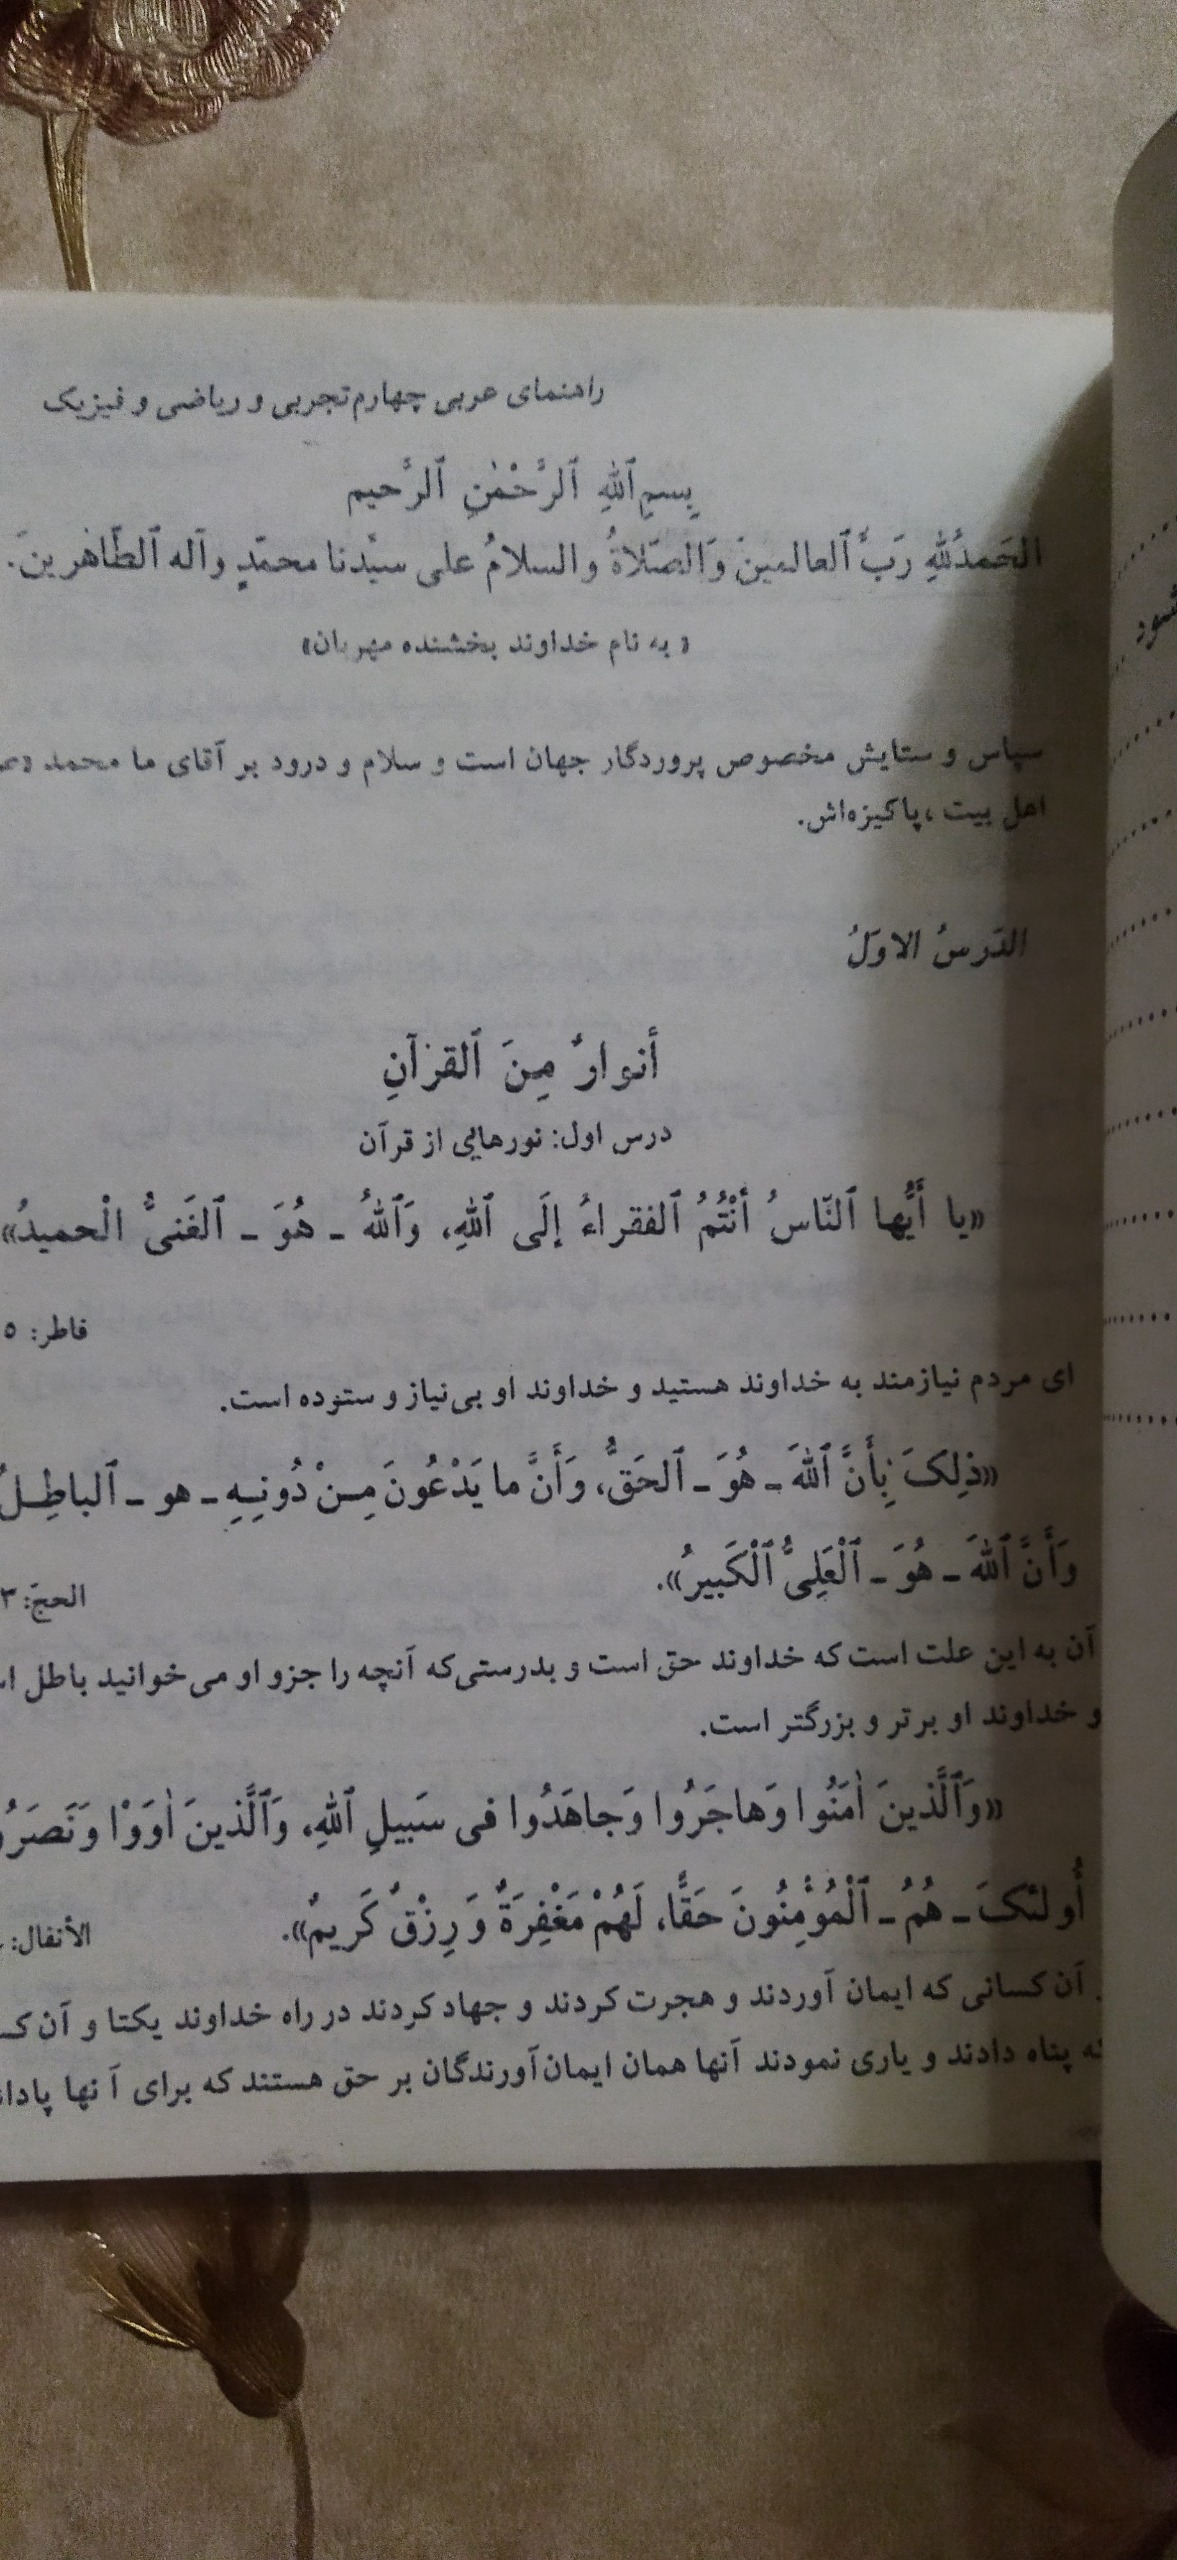 راهنمای عربی چهارم تجربی و ریاضی و فیزیک
بِسمِ ٱللهِ ٱلرَّحْمٰنِ ٱلرَّحیم
الحَمدُللهِ رَبِّ ٱلعالمینَ وَالصّلاةُ والسلامُ علی سیّدنا محمّدٍ وآله ٱلطّاهرینَ.
« به نام خداوند بخشنده مهربان»
سپاس و ستایش مخصوص پروردگار جهان است و سلام و درود بر آقای ما محمد
اهل بیت ،پاکیزه‌اش.
الدّرسُ الاوّلُ
أنوارٌ مِنَ ٱلقرآنِ
درس اول: نورهایی از قرآن
«یا أَیُّها ٱلنّاسُ أنْتُمُ ٱلفقراءُ إلَی ٱللهِ، وَٱللهُ ـ هُوَ ـ ٱلغَنیُّ الْحمیدُ»
فاطر: ٥
ای مردم نیازمند به خداوند هستید و خداوند او بی‌نیاز و ستوده است.
«ذٰلِکَ بِأَنَّ ٱللهَ ـ هُوَ ـ ٱلحَقُّ، وَأَنَّ ما یَدْعُونَ مِـنْ دُونِـهِ ـ هو ـ ٱلباطِـلُ
وَأَنَّ ٱللهَ ـ هُوَ ـ ٱلْعَلِیُّ ٱلْکَبیرُ».
الحجّ: ٣
آن به این علت است که خداوند حق است و بدرستی‌که آنچه را جزو او می‌خوانید باطل
و خداوند او برتر و بزرگتر است.
«وَٱلَّذینَ اٰمَنُوا وَهاجَرُوا وَجاهَدُوا فی سَبیلِ ٱللهِ، وَٱلَّذینَ اٰوَوْا وَنَصَرُو
أُولئکَ ـ هُمُ ـ ٱلْمُؤْمِنُونَ حَقًّا، لَهُمْ مَغْفِرَةٌ وَ رِزْقٌ کَریمٌ».
الأنفال:
آن کسانی که ایمان آوردند و هجرت کردند و جهاد کردند در راه خداوند یکتا و آن
پناه دادند و یاری نمودند آنها همان ایمان‌آورندگان بر حق هستند که برای آنها
شود